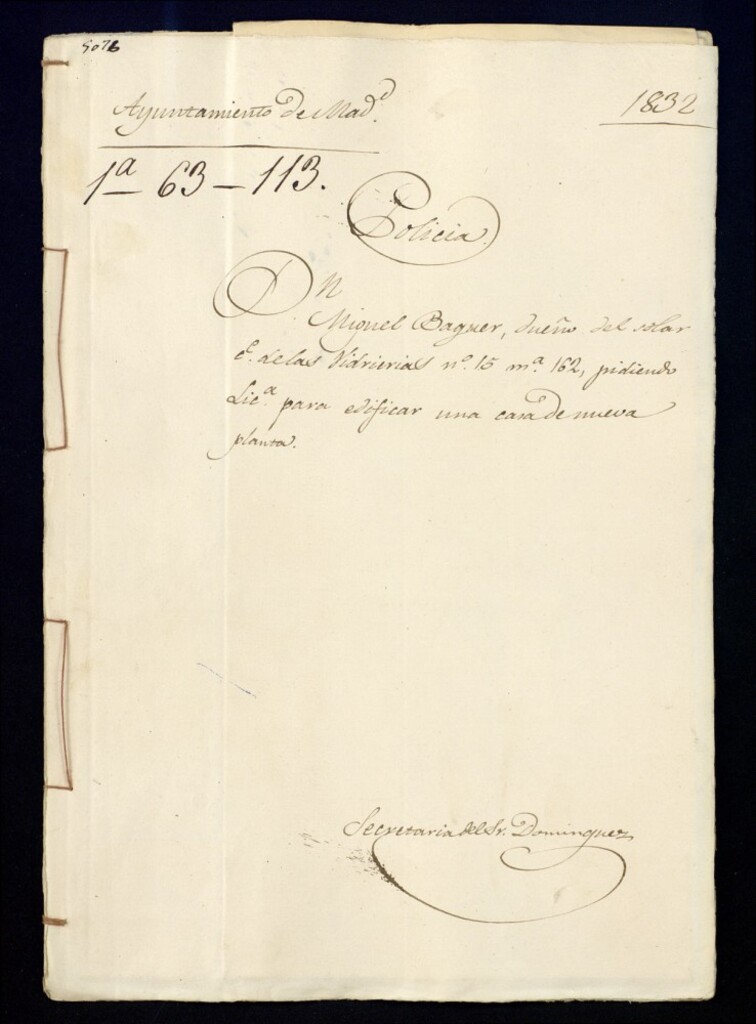 5076
Ayuntamiento de Mad.d
1832
1a 63 - 113.
Policia.
Dn
Miguel Baguer, dueño del solar
c.e de las Vidrierias n.o 15 m.a 162, pidiendo
Lic.a para edificar una casa de nueva
planta.
Secretaria del Sr. Dominguez